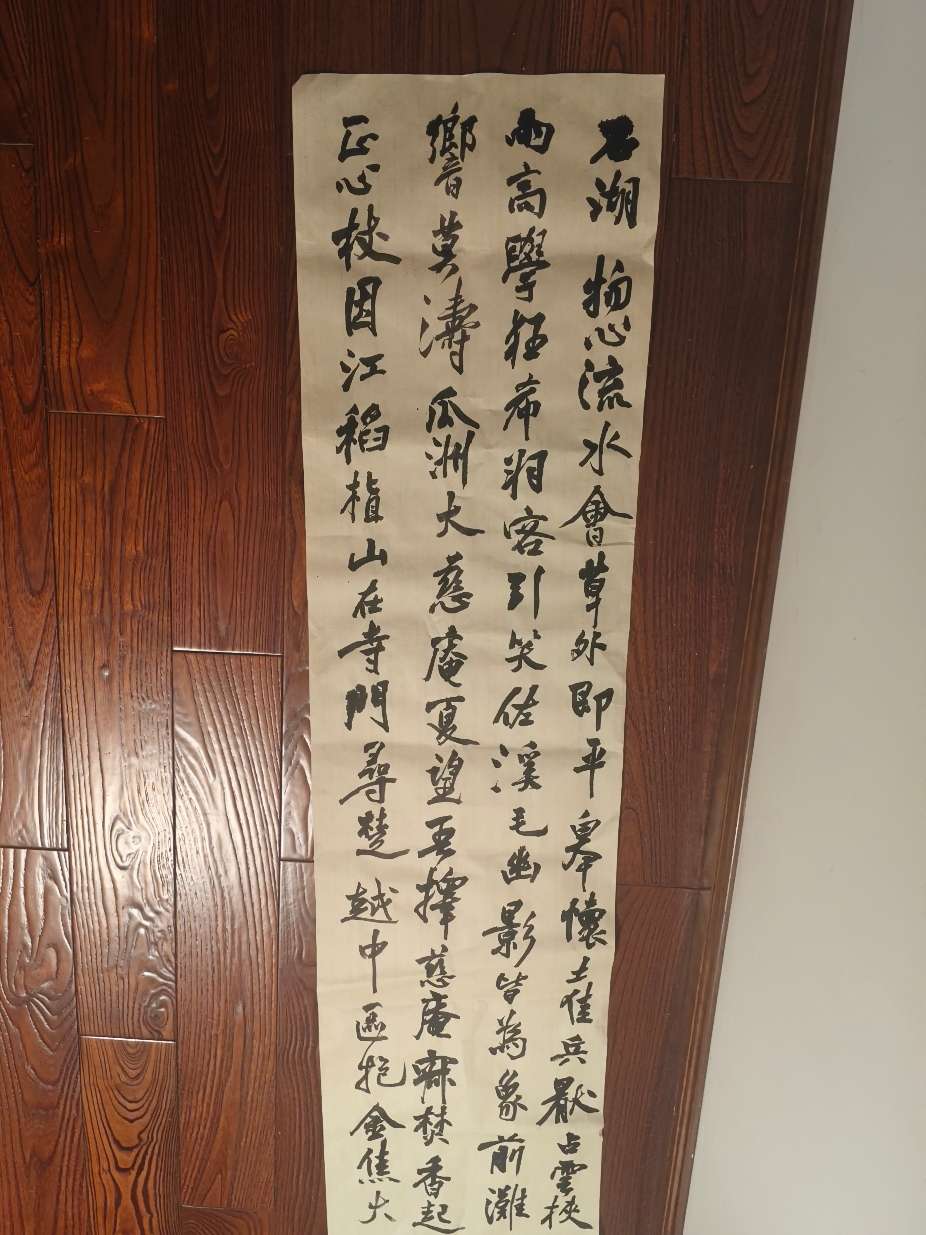 石湖 物心流水會草外即平皋懷土隹兵厭占雲挾
雨高學狂希羽客引笑佐溪毛幽影皆為象前灘
響莫濤 瓜洲大慈庵夏望 吾擇慈庵寐焚香起
正心杖因江稻植山在寺門尋楚越中區抱金焦大